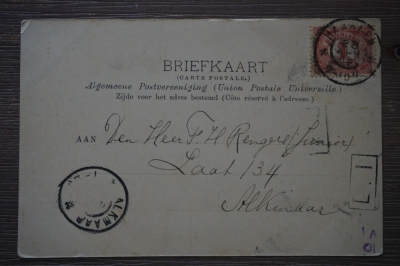 BRIEFKAART
(CARTE POSTALE.)
Algemeene Postvereeniging (Union Postale Universelle.)
Zijde voor het adres bestemd (Côté réservé à l'adresse.)
AAN Den Heer F H Rengers (Junior)
Laat 134
Alkmaar
ALKMAAR